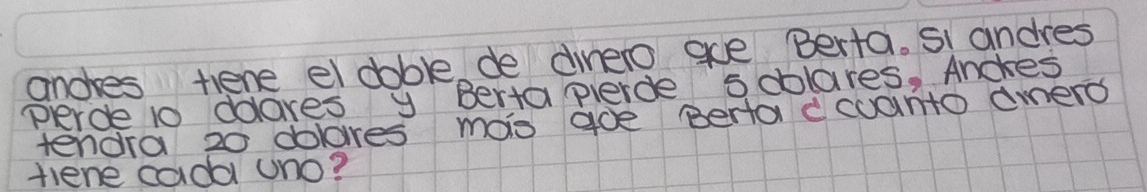 andres tiene el doble de dinero que Berta. Si andres
pierde 10 dolares y Berta pierde 5 dolares, Andres
tendra 20 dolares más que Berta ¿cuanto dinero
tiene cada uno?